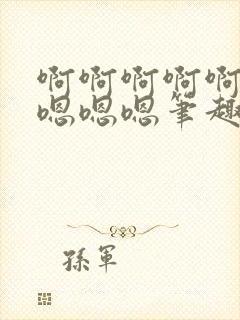 啊啊啊啊啊
嗯嗯嗯笔趣
孫軍